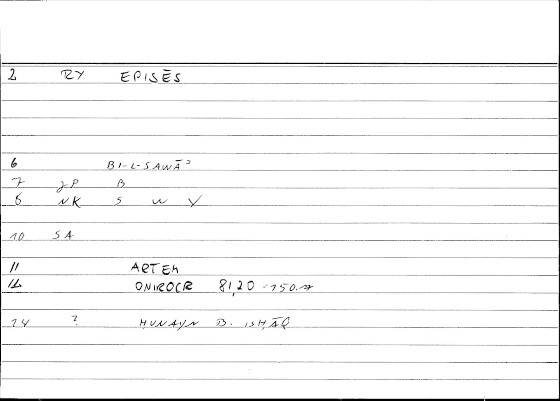 2 RY EPISĒS
6 BI-L-SAWĀʾ
7 JP B
8 NK S W Y
10 SA
11 ARTEM
12 ONIROCR 81,20
14 ? ḤUNAYN B. ISḤĀQ